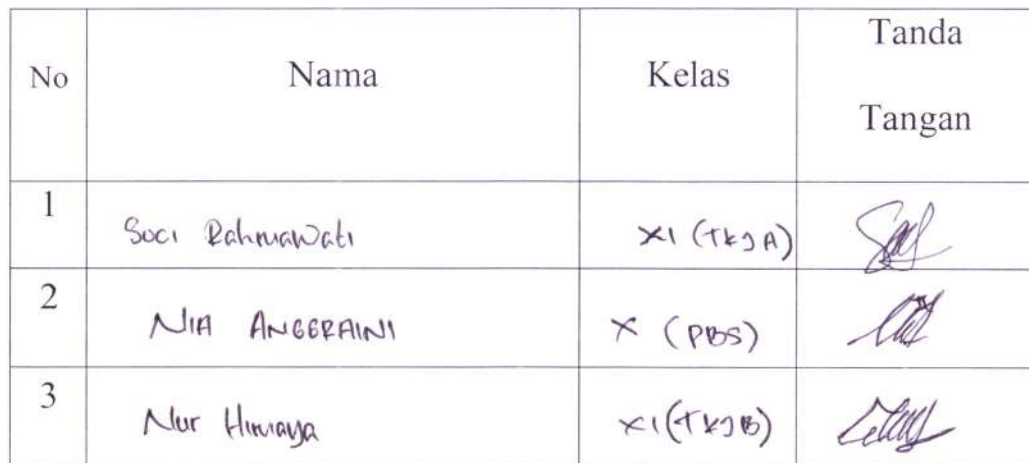 No Nama Kelas Tanda Tangan
1 Suci Rahmawati XI (TKJ A)
2 NIA ANGGRAINI X (PBS)
3 Nur XI (TKJ B)